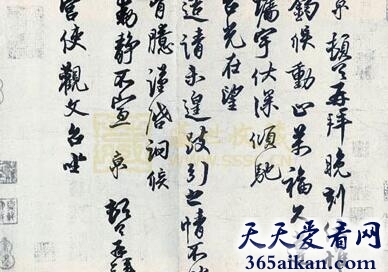 京 頓首再拜 晚刻
鈞候動止萬福 久
墻宇伏深傾馳
台光在望
造請未遑跂引之情不
胸臆 謹啓詞候
務靜不宣 京 頓首再拜
宮使 觀文台坐
天天爱看网
365aikan.com